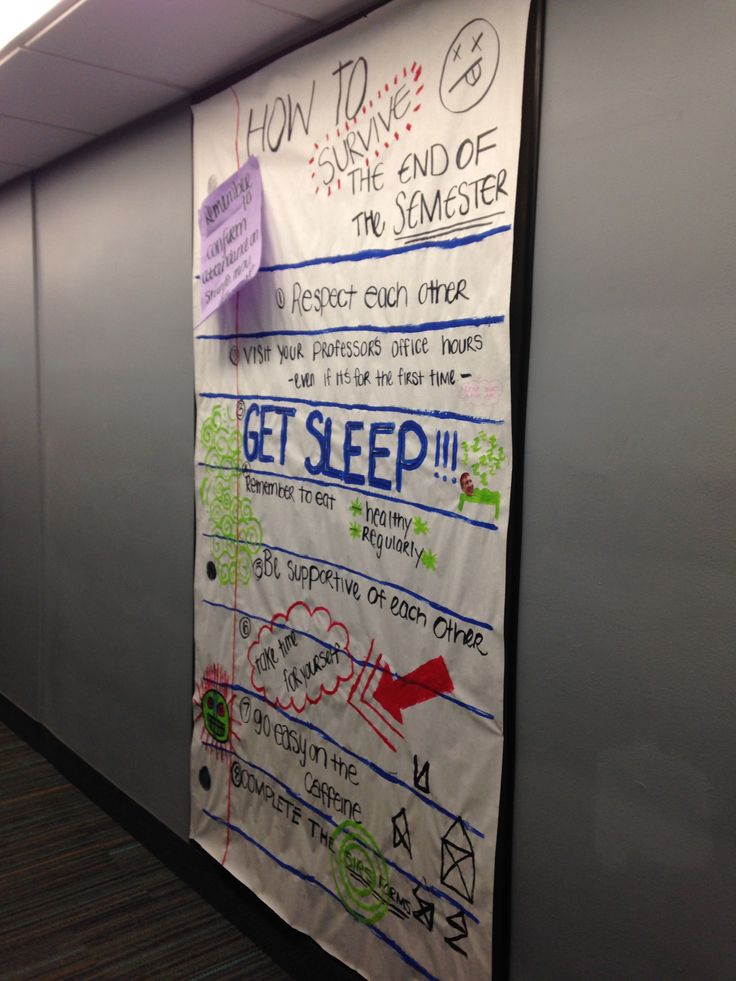 HOW TO
SURVIVE
THE END OF
THE SEMESTER
Remember
to
confirm
① Respect each other
② VISIT YOUR PROFESSOR'S OFFICE HOURS
-even if it's for the first time-
③ GET SLEEP!!!
④ Remember to eat
- healthy
- Regularly
⑤ Be supportive of each other
⑥ take time
for yourself
⑦ go easy on the
caffeine
⑧ COMPLETE THE SIRS FORMS